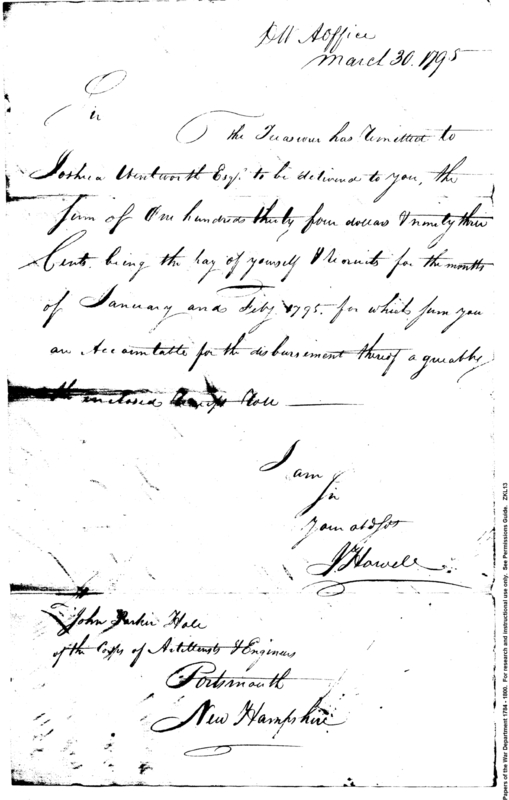 DW Aoffice
March 30. 1795
Sir
The Treasurer has remitted to
Joshua Wentworth Esqr. to be delivered to you, the
sum of One hundred thirty four dollars & ninety three
Cents. being the pay of yourself & recruits for the months
of January and Feby. 1795. for which sum you
are Accountable for the disbursement thereof agreeably
the enclosed Roll
I am
Sir
Your obd Sert
J Howell
John Parker Hale
of the Corps of Artillerists & Engineers
Portsmouth
New Hampshire
Papers of the War Department 1784 - 1800. For research and instructional use only. See Permissions Guide. ZXL13